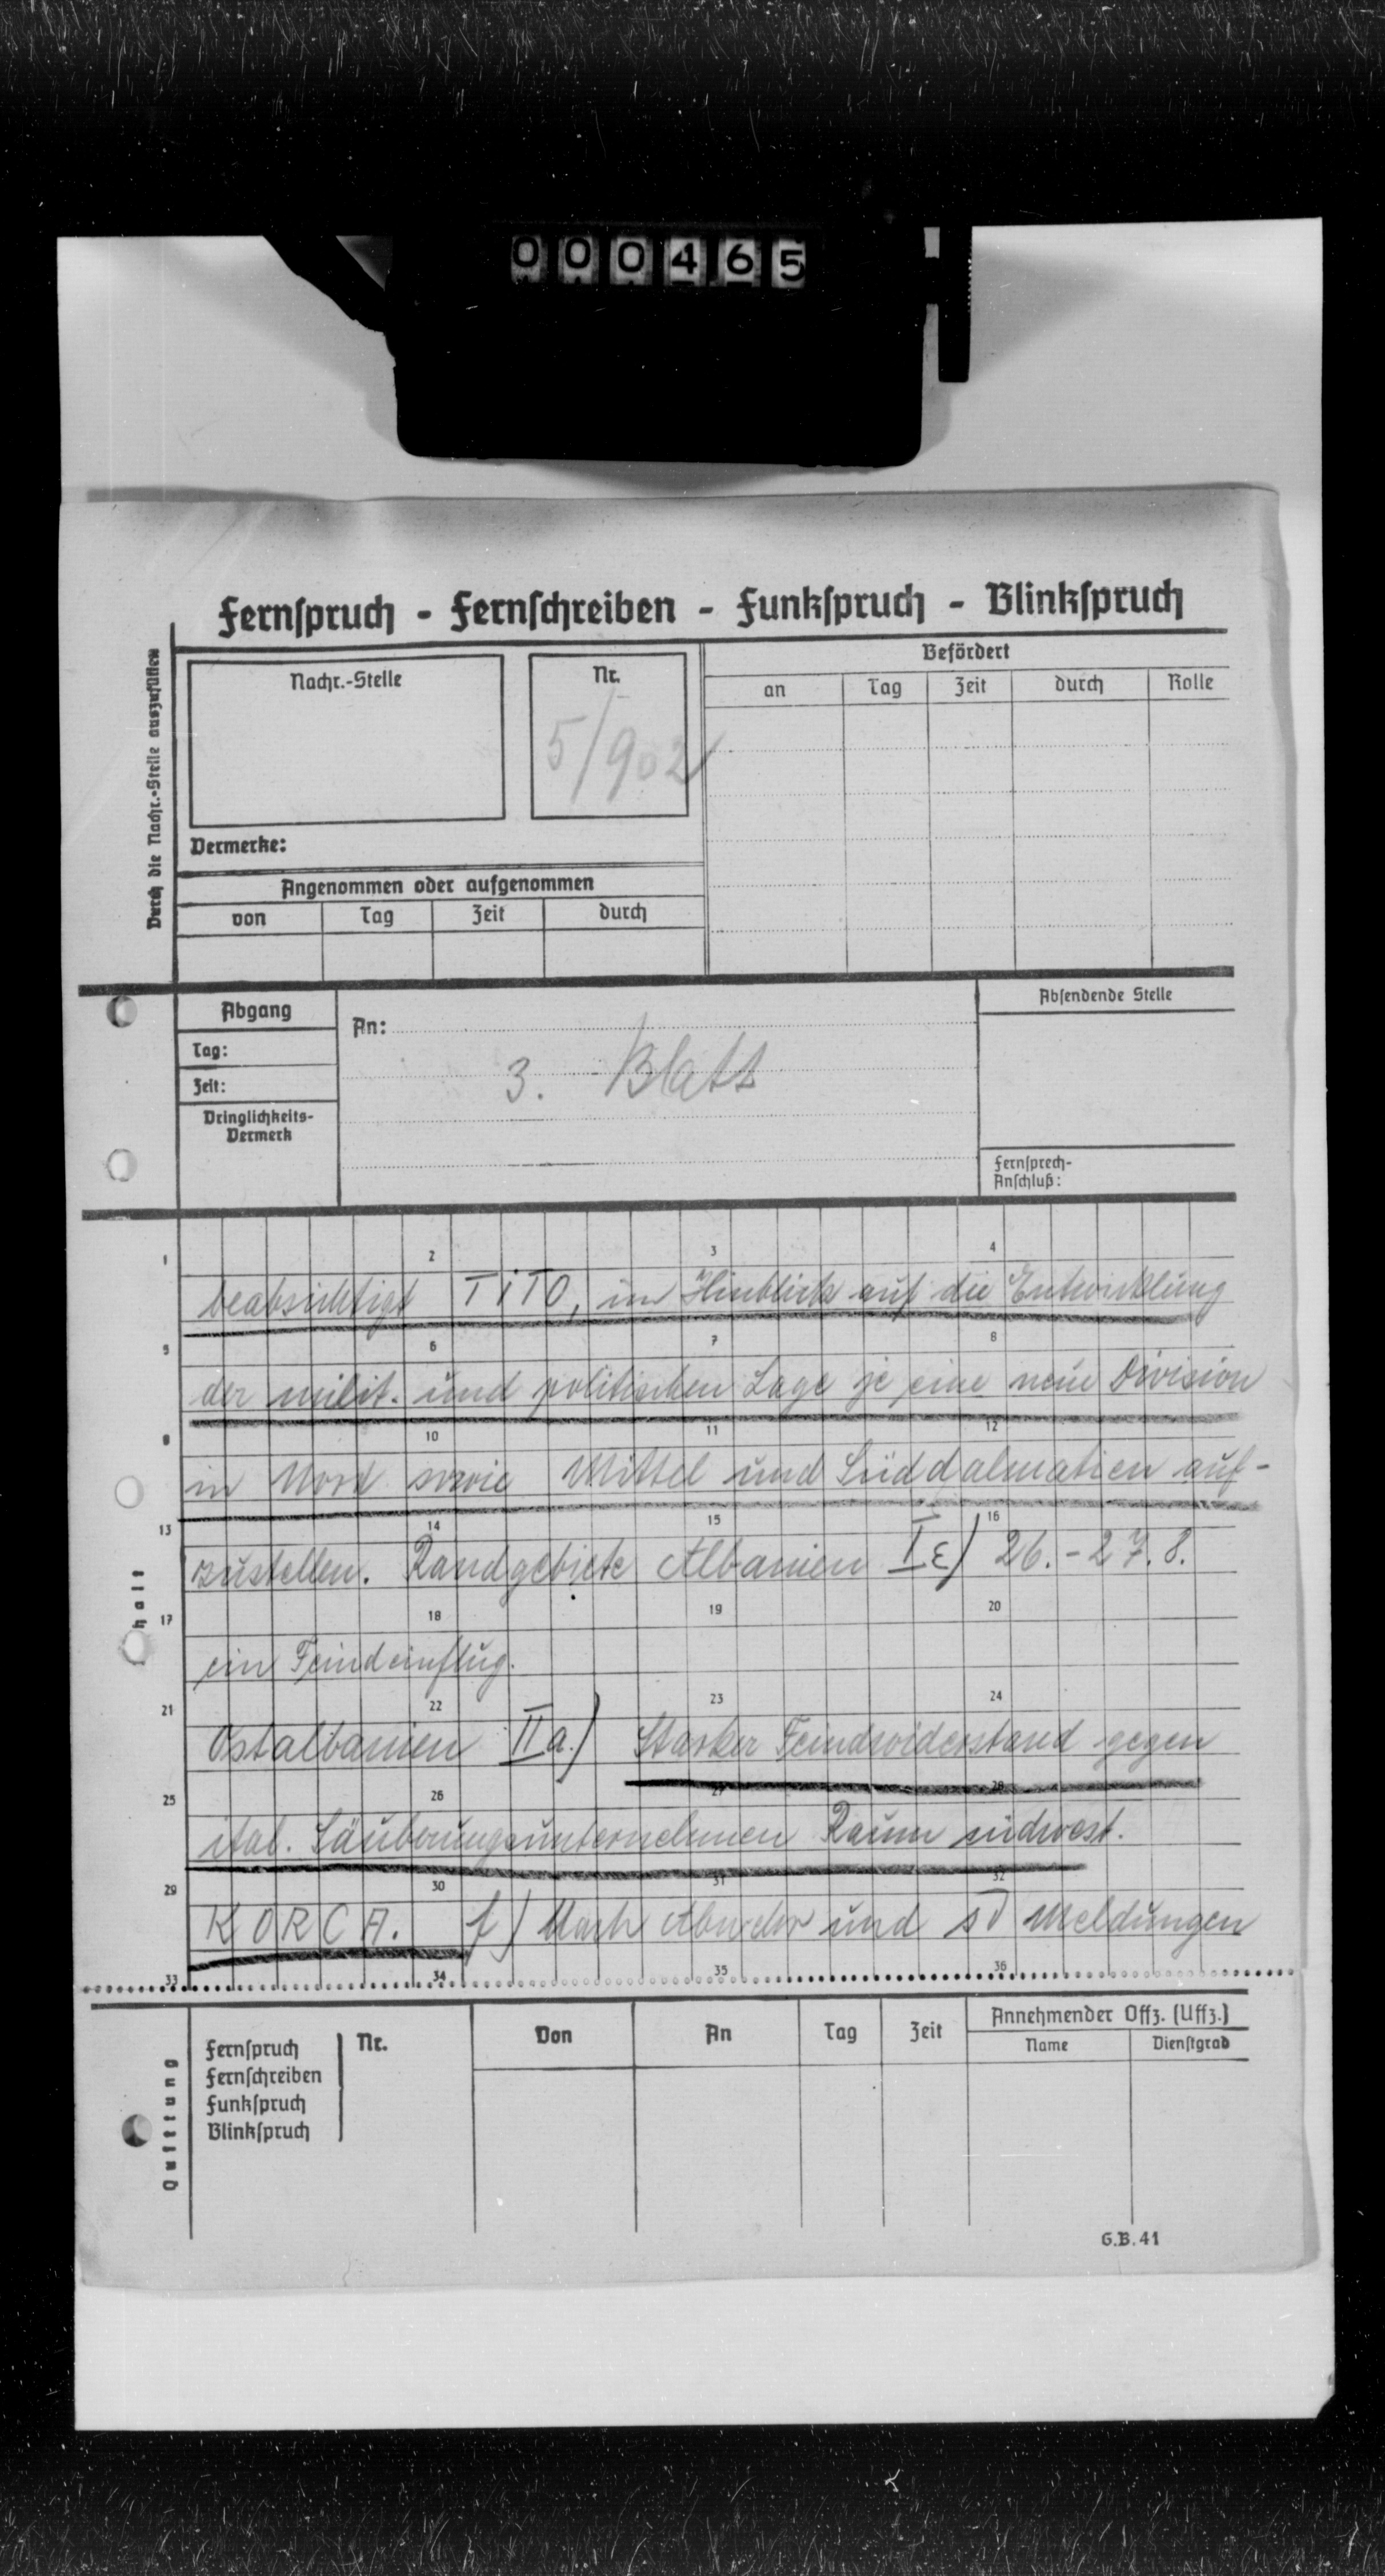 000465
Fernspruch - Fernschreiben - Funkspruch - Blinkspruch
Durch die Nachr.-Stelle auszufüllen
Nachr.-Stelle
Nr.
5/902
Befördert
an Tag Zeit durch Rolle
Vermerke:
Angenommen oder aufgenommen
von Tag Zeit durch
Abgang
Tag:
Zeit:
Dringlichkeits-
Vermerk
An:
3. Blatt
Absendende Stelle
Fernsprech-
Anschluß:
1 2 3 4
beabsichtigt TITO, im Hinblick auf die Entwicklung
5 6 7 8
der milit. und politischen Lage je eine neue Division
9 10 11 12
in Nord sowie Mittel und Süddalmatien auf-
13 14 15 16
zustellen. Randgebiete Albanien I ε) 26.-27.8.
17 18 19 20
ein Feindeinflug.
21 22 23 24
Ostalbanien II a.) Starker Feindwiderstand gegen
25 26 27 28
ital. Säuberungsunternehmen Raum südwest.
29 30 31 32
KORCA. f) Nach Abwehr und SD Meldungen
33 34 35 36
Quittung
Fernspruch
Fernschreiben
Funkspruch
Blinkspruch
Nr.
Von An Tag Zeit
Annehmender Offz. (Uffz.)
Name Dienstgrad
G.B. 41